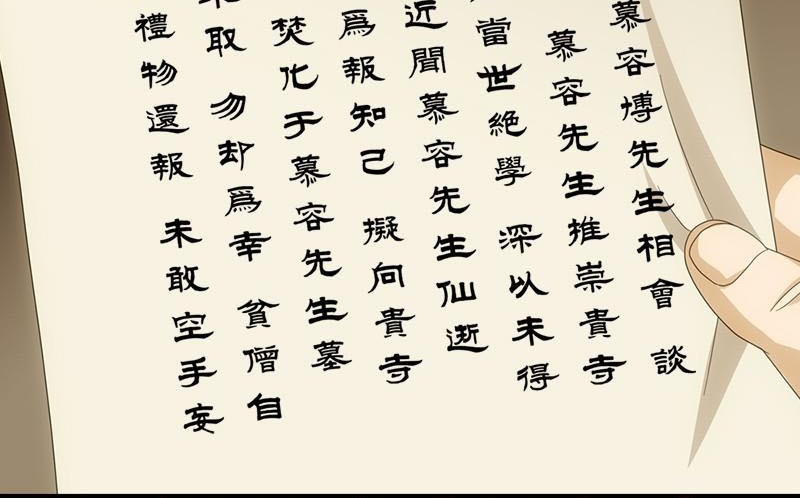 慕容博先生相會 談
慕容先生推崇貴寺
當世絕學 深以未得
近聞慕容先生仙逝
爲報知己 擬向貴寺
焚化于慕容先生墓
取 勿却爲幸 貧僧自
禮物還報 未敢空手妄